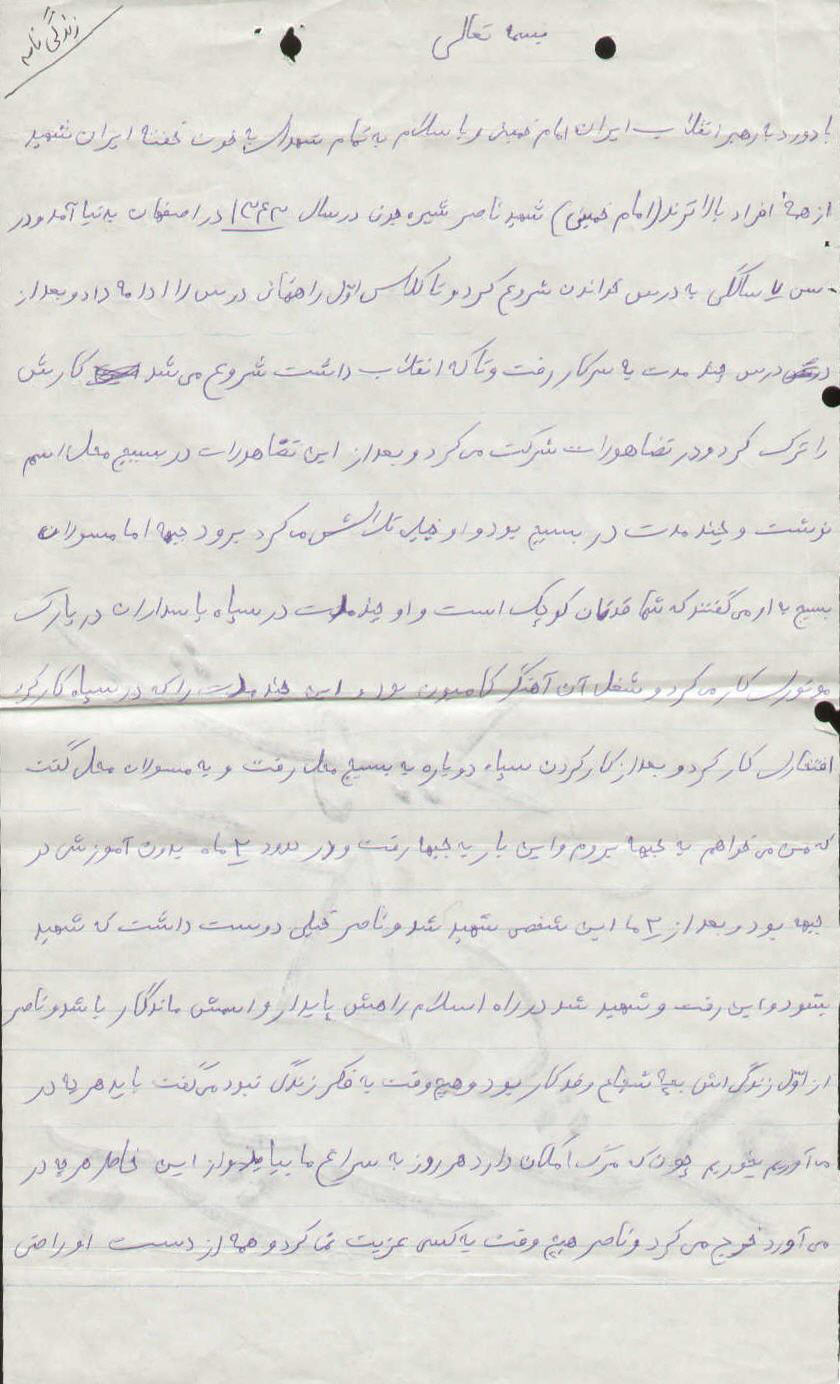 زندگی نامه
بسمه تعالی
با درود به رهبر انقلاب ایران امام خمینی و با سلام به تمام شهدای به خون خفته ایران شهید
از همهٔ افراد بالاترند (امام خمینی) شهید ناصر شیره جون در سال ۱۳۴۳ در اصفهان بدنیا آمد و در
سن ۷ سالگی به درس خواندن شروع کرد و تا کلاس اوّل راهنمائی درس را ادامه داد و بعد از
درس چند مدت به سر کار رفت و تا که انقلاب داشت شروع می شد کارش
را ترک کرد و در تضاهورات شرکت می کرد و بعد از این تضاهورات در بسیج محل اسم
نوشت و چند مدت در بسیج بود و او خیلی تلاشش می کرد برود جبهه اما مسولان
بسیج به او می گفتند که شما قدتان کوچک است و او چند مدت در سپاه پاسداران در پارک
موتوری کار می کرد و شغل آن آهنگر کامیون بود و این چند مدت را که در سپاه کار کرد
افتخاری کار کرد و بعد از کار کردن سپاه دوباره به بسیج محل رفت و به مسولان محل گفت
که من می خواهم به جبها بروم و این بار به جبها رفت و در حدود ۲ ماه بدون آموزش در
جبهه بود و بعد از ۲ ما این شخص شهید شد و ناصر خیلی دوست داشت که شهید
بشود و این رفت و شهید شد در راه اسلام راهش پایدار و اسمش ماندگار باشد و ناصر
از اوّل زندگی اش بچه شجاع و فدکار بود و هیچ وقت به فکر زندگی نبود می گفت باید هر چه در
می آوریم بخوریم چون که مرگ امکان دارد هر روز به سراغ ما بیاید و از این خاطر هر چه در
می آورد خرج می کرد و ناصر هیچ وقت به کسی عزیت نمی کرد و همه از دست او راضی